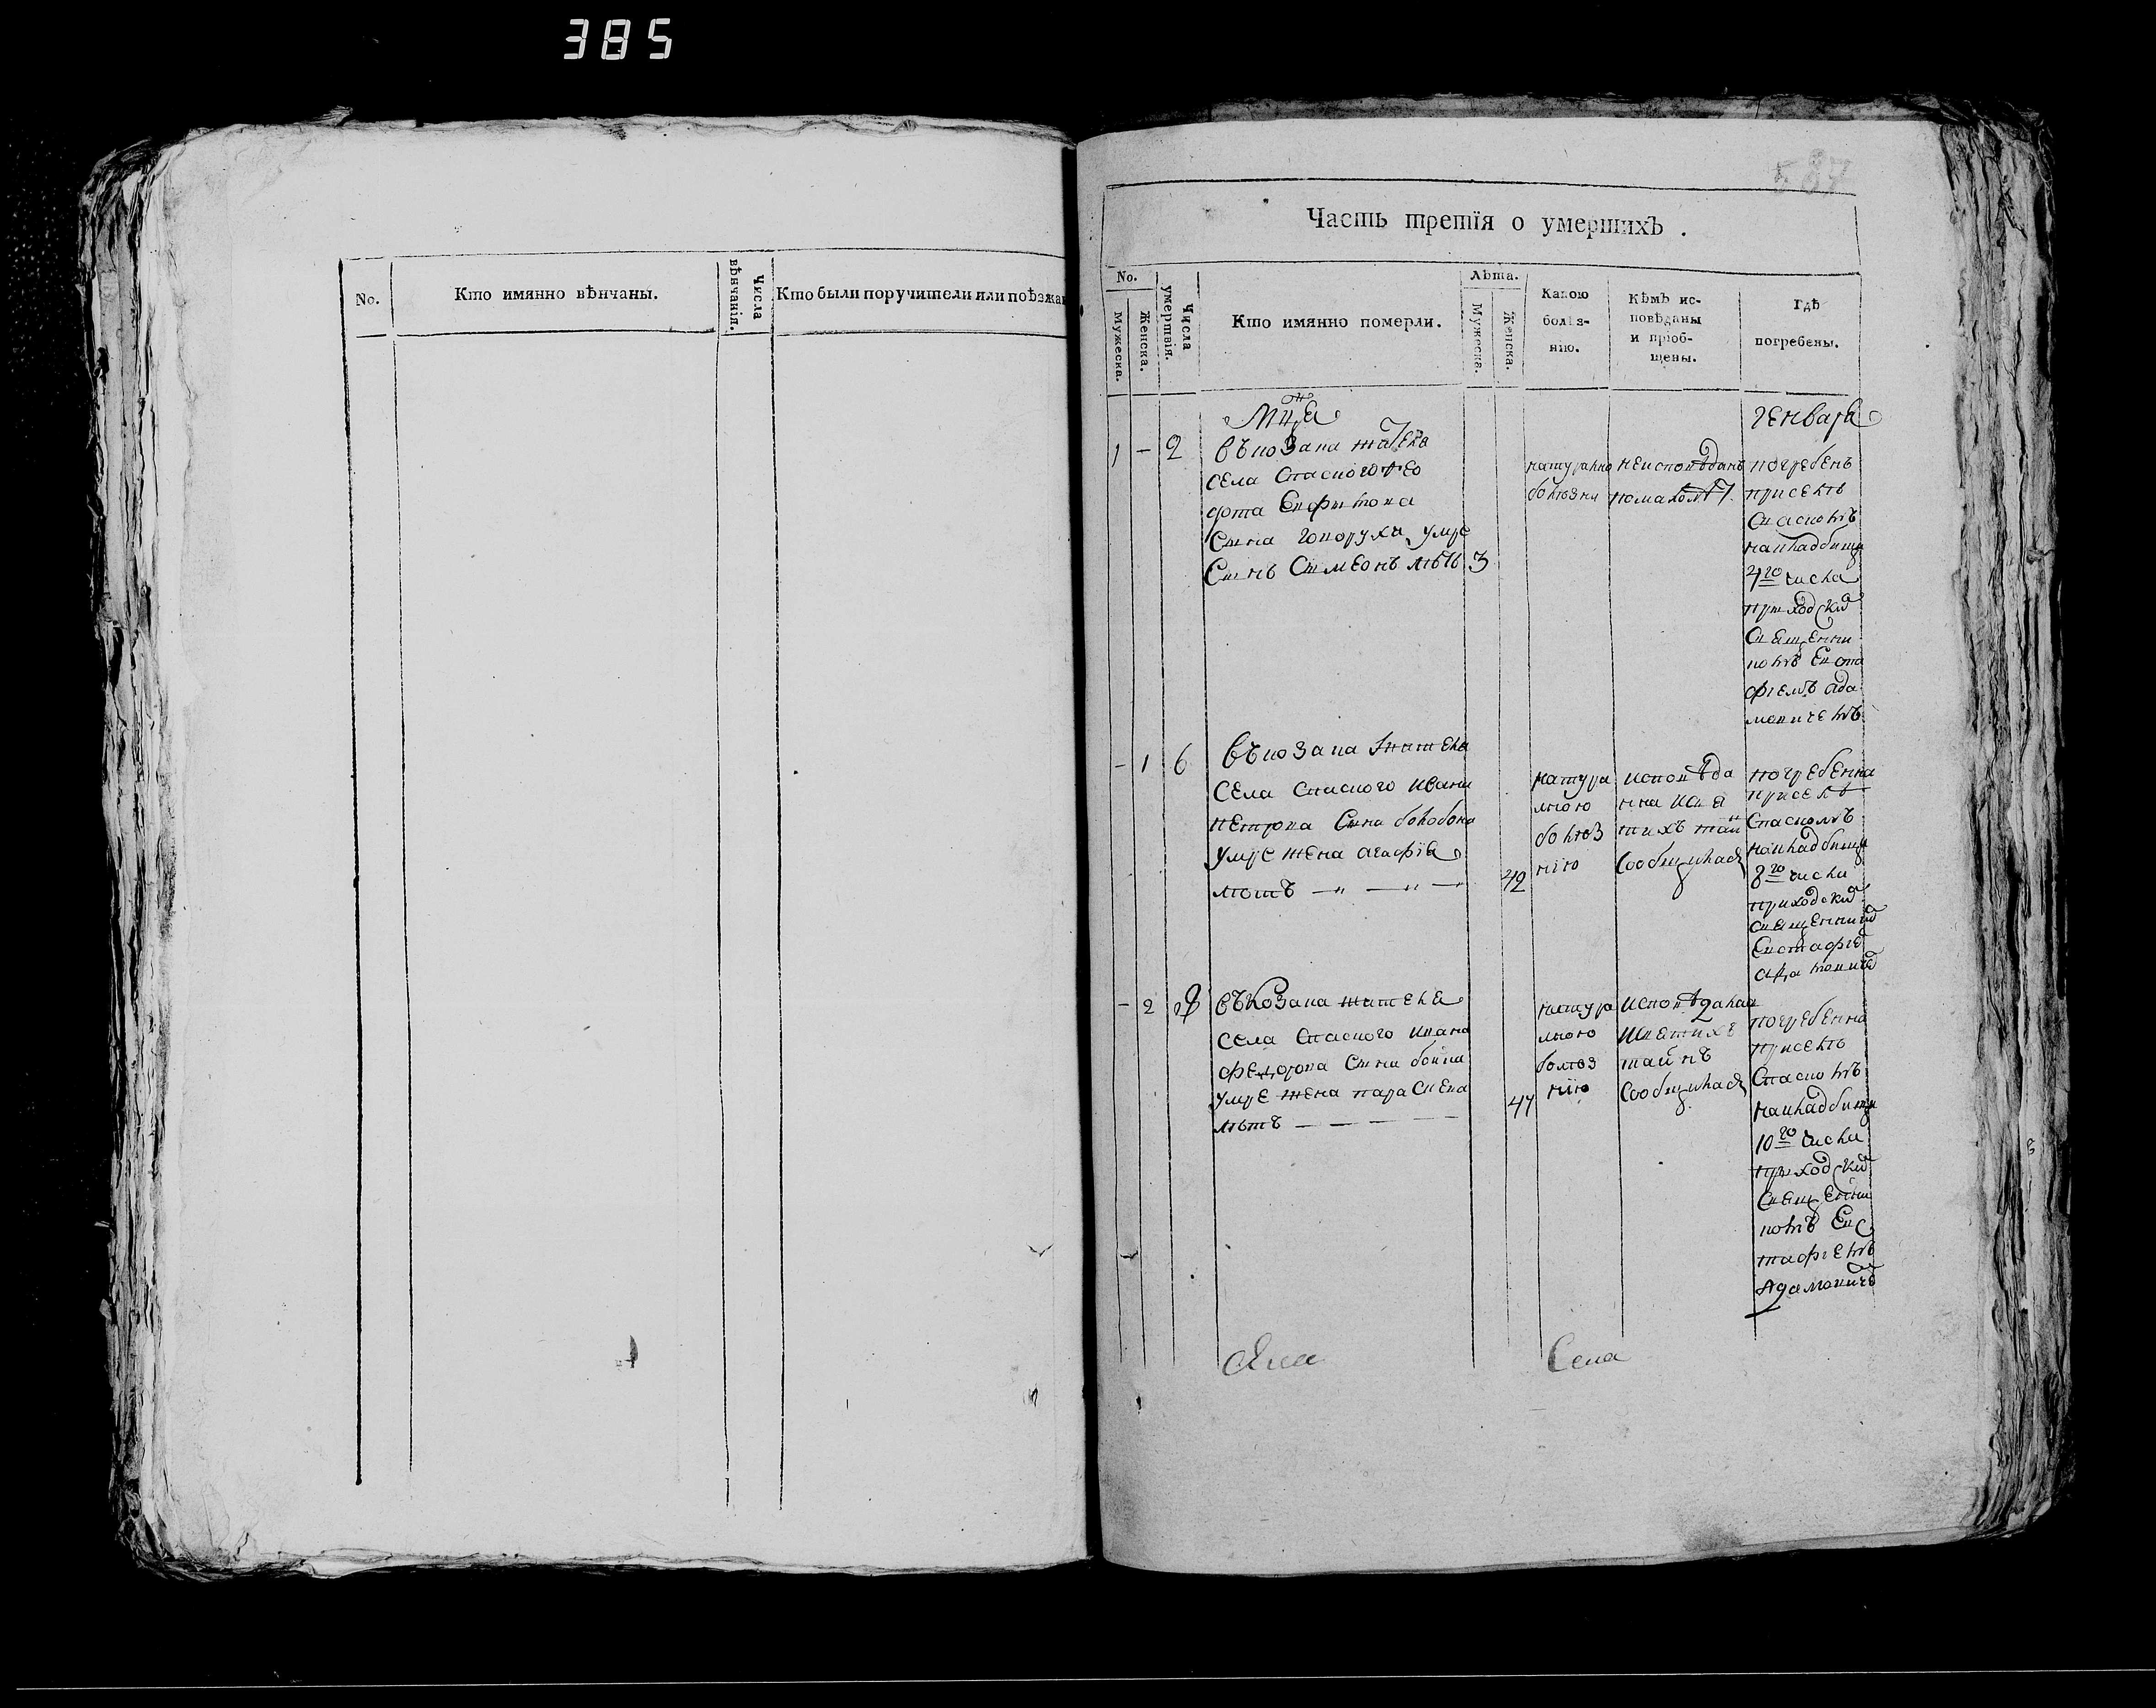 385
587
No.
Кто имянно вѣнчаны.
Числа вѣнчанія.
Кто были поручители или поѣзжан
Часть третїя о умершихъ.
No.
Мужеска.
Женска.
Числа умертвія.
Кто имянно померли.
Лѣта.
Мужеска.
Женска.
Какою
болѣз-
нію.
Кѣмъ ис-
повѣданы
и пріоб-
щены.
Гдѣ
погребены.
Мца
генваря
1 - 2
села Спаского Фео
фта
Сына умре
Сынъ Симеонъ лѣтъ 3
натурално
болѣзни
неисповѣданъ
погребенъ
при селѣ
Спаскомъ
на кладбищи
4го числа
приходски
Священни
комъ Евста
фіемъ Ада
мовичемъ
- 1 6
въ козака жителя
села Спаского Ивана
Петрова Сына
умре жена Агафїя
лѣтъ — „ — „ —
42
натура
лною
болѣз
нію
исповѣда
на и свя
тихъ тай
Сообщилася
погребенна
при селѣ
Спаскомъ
на кладбищи
8го числа
приходски
священни
Евстафіе
Адамович
- 2 8
въ козака жителя
села Спаского Ивана
Федорова Сына
умре жена Параскева
лѣтъ — — — —
47
натура
лною
болѣз
нїю
Исповѣдалась
И святихъ
тайнъ
Сообщилася
погребенна
при селѣ
Спаскомъ
на кладбищи
10го числа
приходски
Священни
комъ Евс
тафіемъ
Адамовиче
Села